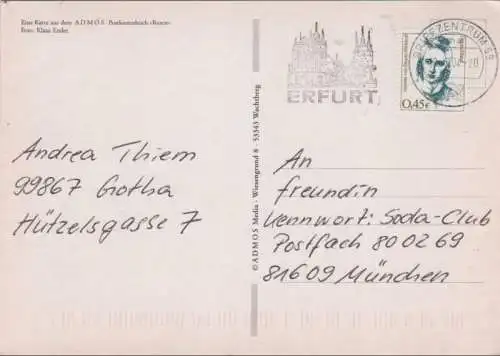 Eine Karte aus dem A D M O S - Postkartenbuch »Katzen«
Foto: Klaus Ender
ERFURT
BRIEFZENTRUM 99
0,45€
Andrea Thiem
99867 Gotha
Hützelsgasse 7
© A D M O S Media · Wiesengrund 8 · 53343 Wachtberg
An
freundin
Kennwort: Soda-Club
Postfach 80 02 69
81609 München